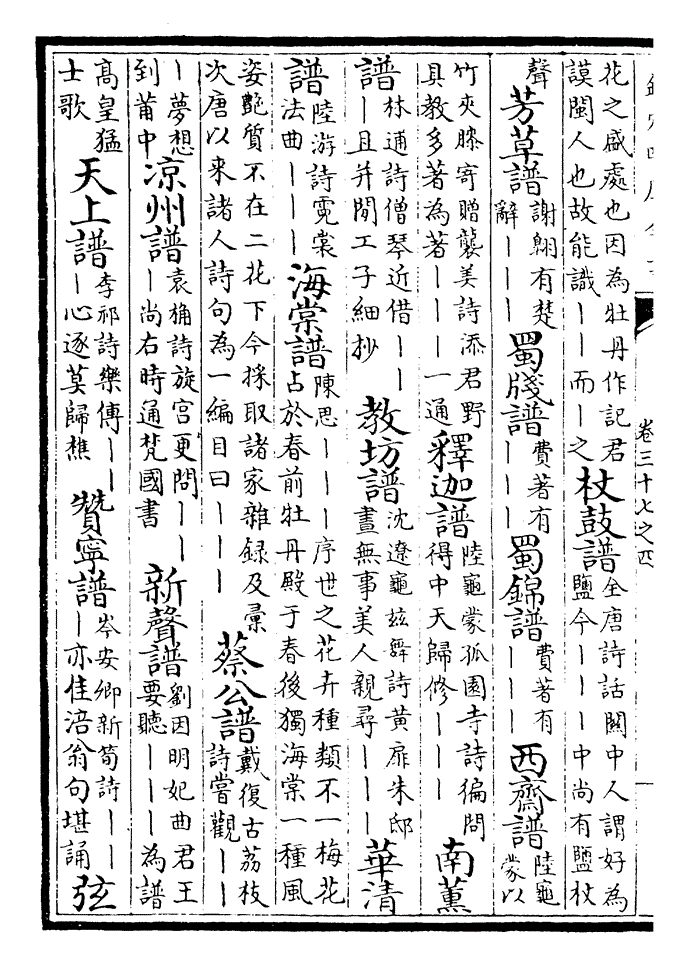 欽定四庫全書
卷三十七之四
花之盛處也因為牡丹作記君
謨閩人也故能識——而—之
杖鼓譜
全唐詩話關中人謂好為
鹽今———中尚有鹽杖
聲
芳草譜
謝翱有楚
辭———
蜀牋譜
費著有
———
蜀錦譜
費著有
———
西齋譜
陸龜
蒙以
竹夾膝寄贈襲美詩添君野
具教多著為著———一通
釋迦譜
陸龜蒙孤園寺詩徧問
得中天歸修———
南薰
譜
林逋詩僧琴近借——
—且并閒工子細抄
教坊譜
沈遼龜兹舞詩黄扉朱邸
晝無事美人親尋———
華清
譜
陸游詩霓裳
法曲———
海棠譜
陳思———序世之花卉種類不一梅花
占於春前牡丹殿于春後獨海棠一種風
姿艷質不在二花下今採取諸家雜録及彙
次唐以來諸人詩句為一編目曰———
蔡公譜
戴復古荔枝
詩嘗觀——
—夢想
到莆中
凉州譜
袁桷詩旋宫更問——
—尚右時通梵國書
新聲譜
劉因明妃曲君王
要聽———為譜
高皇猛
士歌
天上譜
李祁詩樂傳——
—心逐莫歸樵
贊寧譜
岑安卿新筍詩——
—亦佳涪翁句堪誦
弦